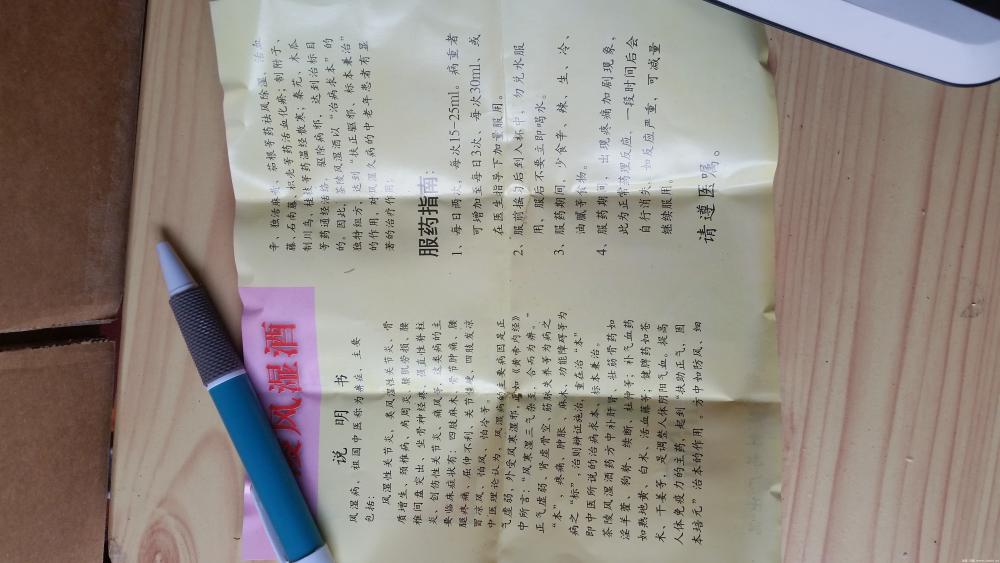 风湿酒
说明书
风湿病、祖国中医称为痹症、主要
包括:
风湿性关节炎、类风湿性关节炎、骨
质增生、颈椎病、肩周炎、腰肌劳损、腰
椎间盘突出、坐骨神经疼、强直性脊柱
炎、创伤性关节炎、痛风等，这类病的主
要临床症状有：四肢麻木、骨节肿痛、腰
腿疼痛、屈伸不利、关节僵硬、四肢发凉
冒凉风、怕风、怕冷等。
中医理论认为、风湿病的主要病因是正
气虚弱、外受风寒湿邪，譬如《黄帝内经》
中所言：“风寒湿三气杂至、合而为痹。”
正气虚弱、肾虚骨空、筋脉失养等为病之
“本”，疼痛、肿胀、麻木、功能障碍等为
病之“标”，治则辩证施治，重在治“本”
即中医所说的治病求本、标本兼治。
茶陵风湿酒药方中补肝肾、壮筋骨药如
淫羊藿、狗脊、续断、杜仲等；补气血药
如熟地黄、白术、活血藤等；健脾药如苍
术、干姜等，是调整人体阴阳气血。提高
人体免疫力的主药，起到“扶助正气、固
本培元”治本的作用。方中如防风、细
辛、独活、茄根等药祛风除湿、活血
藤、石南藤、枳壳等药活血化瘀；制附子、
制川乌、桂枝等药温经散寒；秦艽、木瓜
等药通经活络，驱除病邪，达到治标目
的。因此，茶陵风湿酒以“治病求本”的
独特组方，达到“扶正驱邪、标本兼治”
的作用，对风湿久病的中老年患者有显
著的治疗作用；
服药指南:
1、每日两次，每次15-25ml。病重者
可增加至每日3次、每次30ml、或
在医生指导下加量服用。
2、服前摇匀后到入杯中，勿兑水服
用、服后不要立即喝水。
3、服药期间，少食辛、辣、生、冷、
油腻等食物。
4、服药期间，出现疼痛加剧现象，
此为正常药理反应、一段时间后会
自行消失、如反应严重、可减量
继续服用。
请遵医嘱。